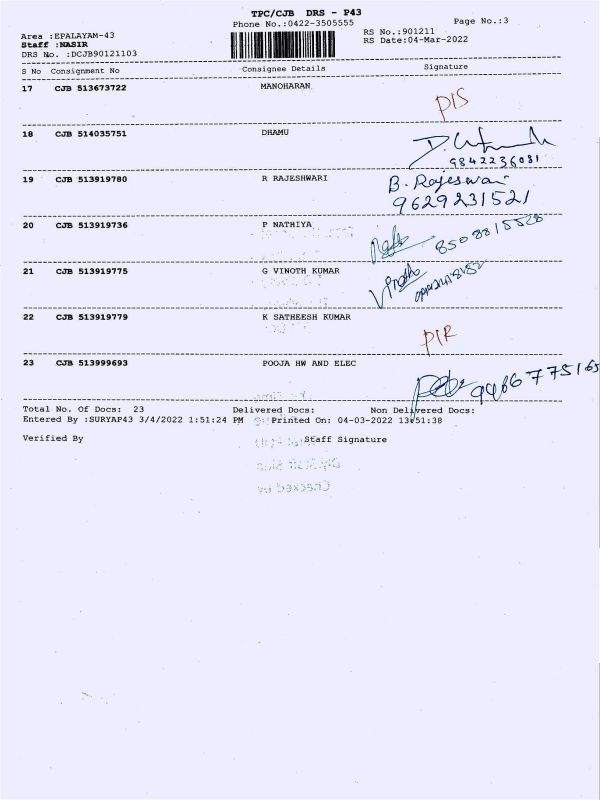 TPC/CJB DRS - P43
Phone No.:0422-3505555
Page No.:3
Area :EPALAYAM-43
RS No.:901211
Staff :NASIR
RS Date:04-Mar-2022
DRS No. :DCJB90121103
S No Consignment No Consignee Details Signature
17 CJB 513673722 MANOHARAN
DIS
18 CJB 514035751 DHAMU
9842236081
19 CJB 513919780 R RAJESHWARI B. Rajeswari
9629231521
20 CJB 513919736 P NATHIYA
8508815528
21 CJB 513919775 G VINOTH KUMAR Vinoth
22 CJB 513919779 K SATHEESH KUMAR
DIR
23 CJB 513999693 POOJA HW AND ELEC
9486775165
Total No. Of Docs: 23 Delivered Docs: Non Delivered Docs:
Entered By :SURYAP43 3/4/2022 1:51:24 PM Printed On: 04-03-2022 13:51:38
Verified By Staff Signature
Checked by